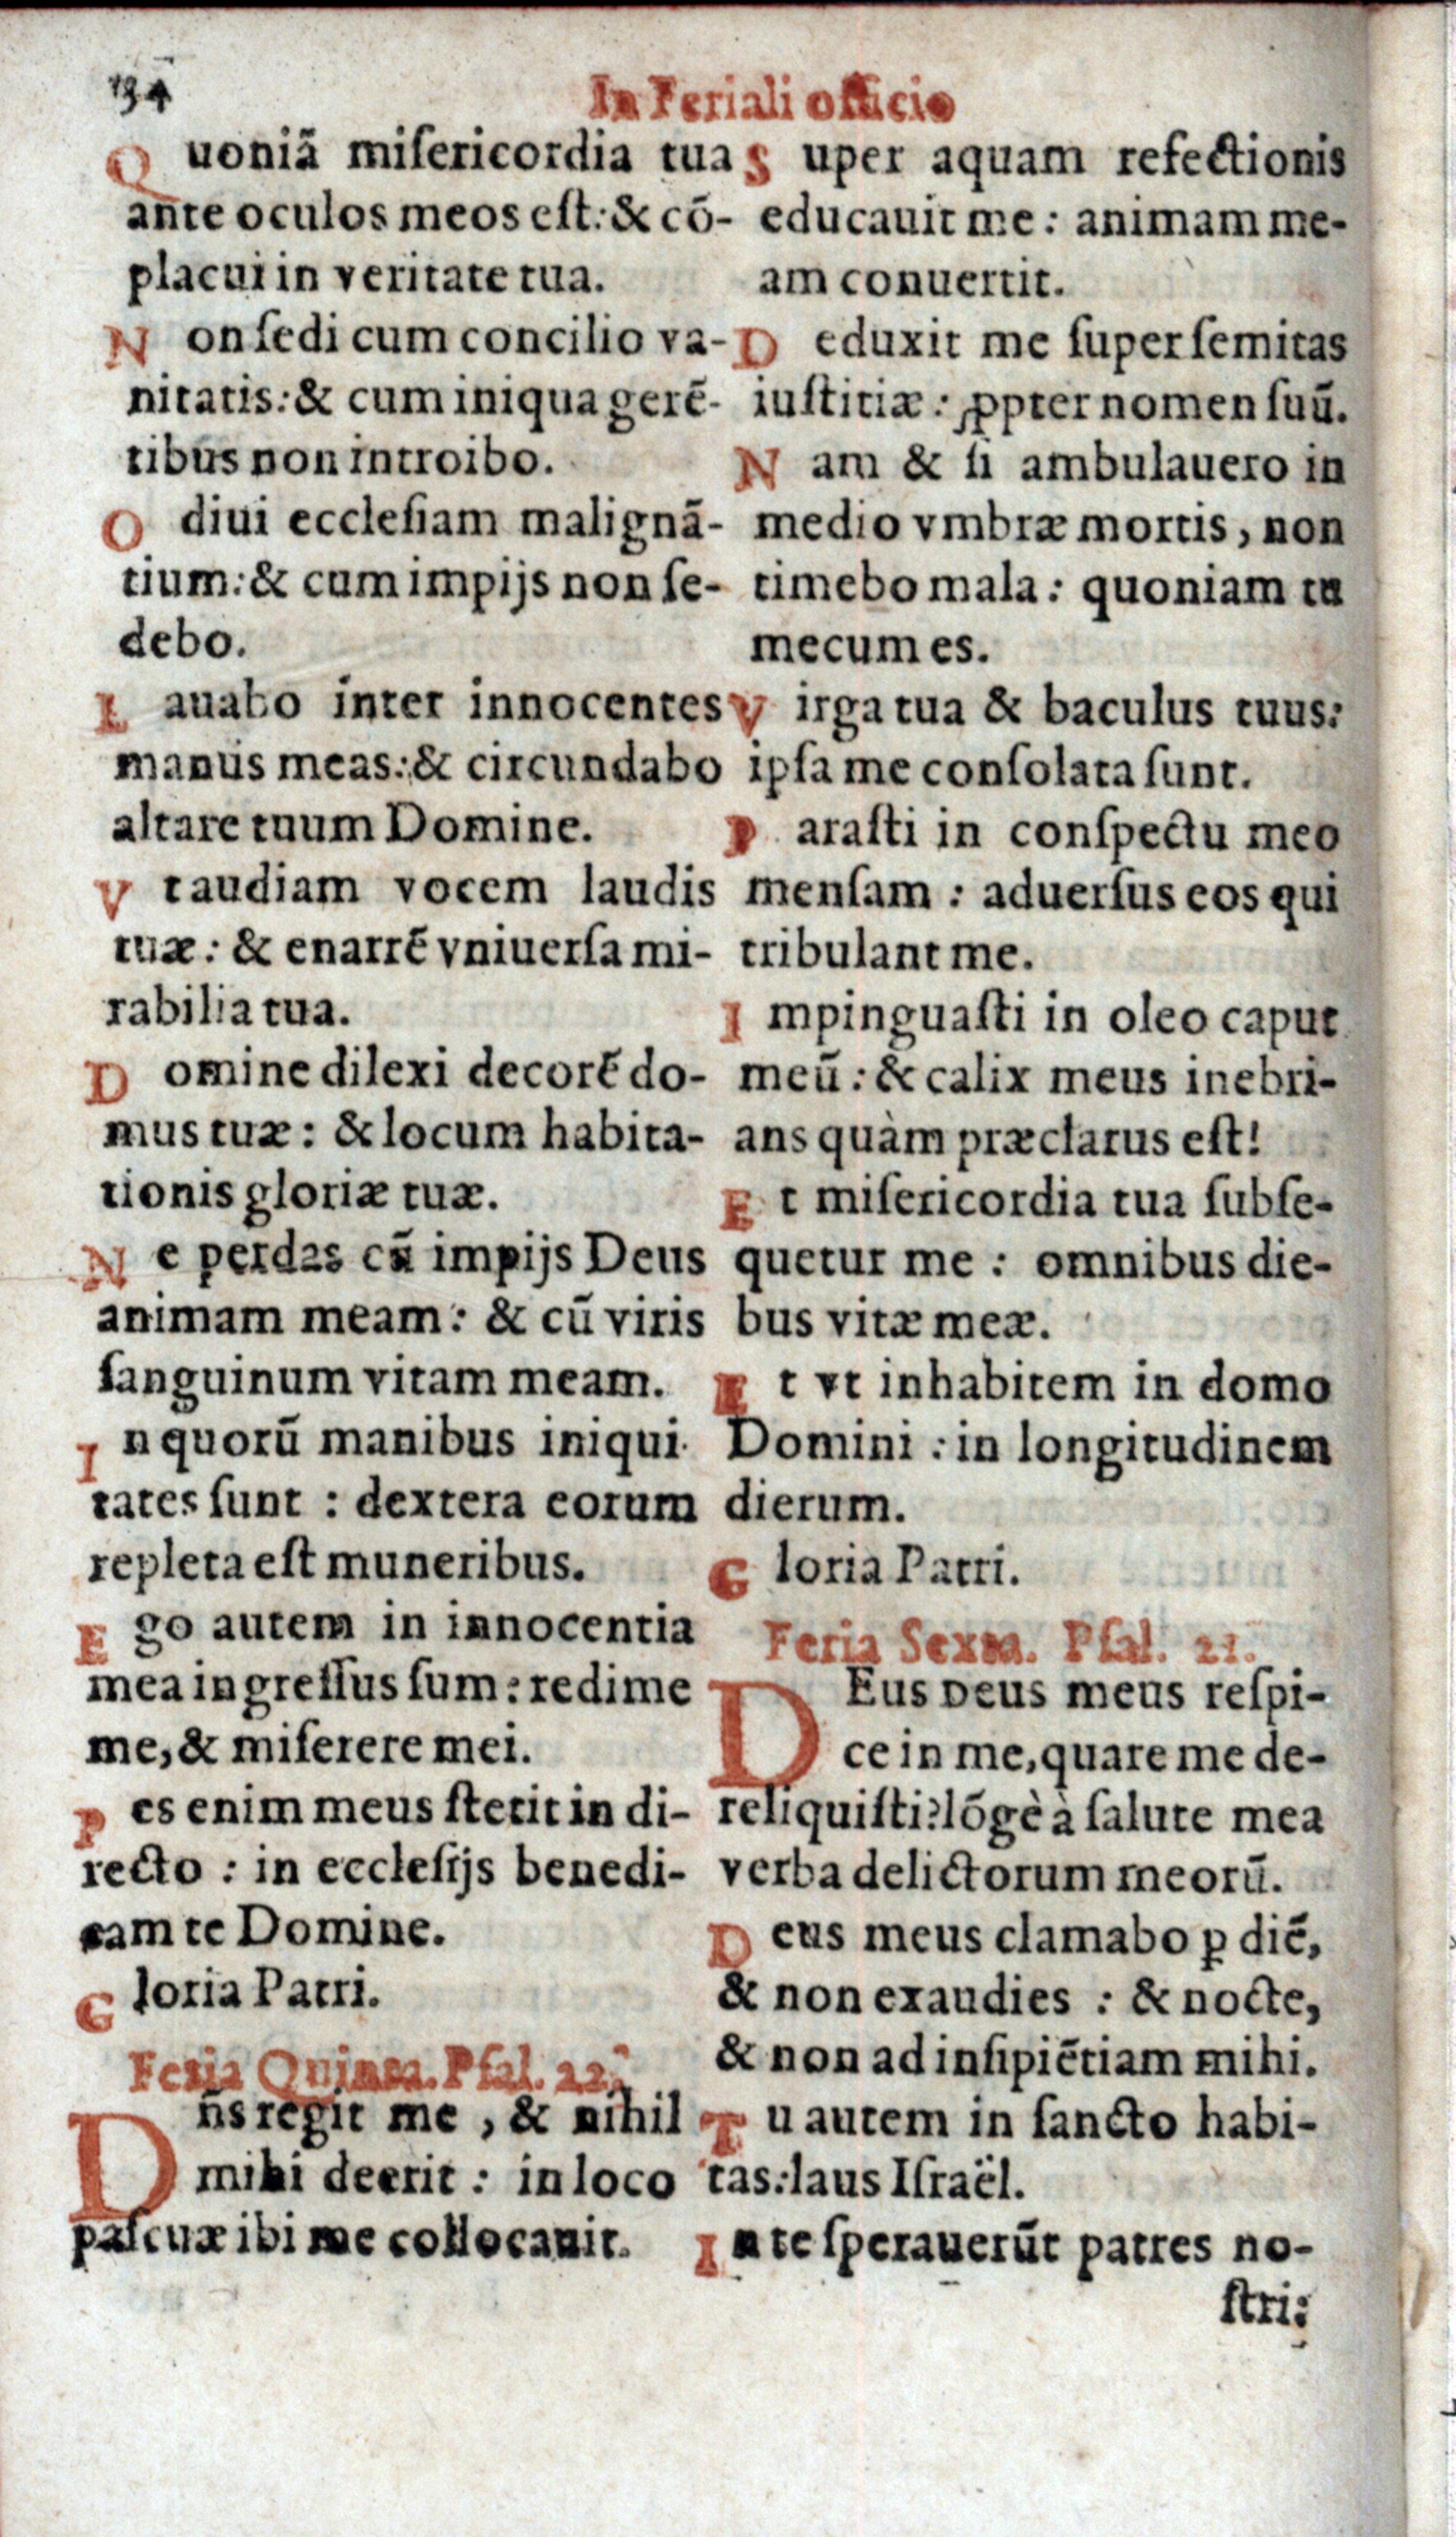 134
In Feriali officio
Quoniã miſericordia tua
ante oculos meos eſt: & cõ-
placui in veritate tua.
Non ſedi cum concilio va-
nitatis: & cum iniqua gerẽ-
tibus non introibo.
Odiui eccleſiam malignã-
tium: & cum impijs non ſe-
debo.
Lauabo inter innocentes
manus meas: & circundabo
altare tuum Domine.
Vt audiam vocem laudis
tuæ: & enarrẽ vniuerſa mi-
rabilia tua.
Domine dilexi decorẽ do-
mus tuæ: & locum habita-
tionis gloriæ tuæ.
Ne perdas cũ impijs Deus
animam meam: & cũ viris
ſanguinum vitam meam.
In quorũ manibus iniqui
tates ſunt: dextera eorum
repleta eſt muneribus.
Ego autem in innocentia
mea ingreſſus ſum: redime
me, & miſerere mei.
Pes enim meus ſtetit in di-
recto: in eccleſijs benedi-
cam te Domine.
Gloria Patri.
Feria Quinta. Pſal. 22.
Dñs regit me, & nihil
mihi deerit: in loco
paſcuæ ibi me collocauit.
Super aquam refectionis
educauit me: animam me-
am conuertit.
Deduxit me ſuper ſemitas
iuſtitiæ: ꝓpter nomen ſuũ.
Nam & ſi ambulauero in
medio vmbræ mortis, non
timebo mala: quoniam tu
mecum es.
Virga tua & baculus tuus:
ipſa me conſolata ſunt.
Paraſti in conſpectu meo
menſam: aduerſus eos qui
tribulant me.
Impinguaſti in oleo caput
meũ: & calix meus inebri-
ans quàm præclarus eſt!
Et miſericordia tua ſubſe-
quetur me: omnibus die-
bus vitæ meæ.
Et vt inhabitem in domo
Domini: in longitudinem
dierum.
Gloria Patri.
Feria Sexta. Pſal. 21.
DEus Deus meus reſpi-
ce in me, quare me de-
reliquiſti? lõgè à ſalute mea
verba delictorum meorũ.
Deus meus clamabo ꝑ diẽ,
& non exaudies: & nocte,
& non ad inſipiẽtiam mihi.
Tu autem in ſancto habi-
tas: laus Iſraël.
In te ſperauerũt patres no-
ſtri: